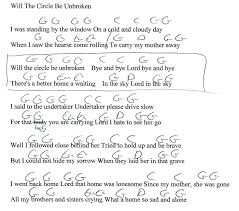 Will The Circle Be Unbroken
G G G G C C G G
I was standing by the window On a cold and cloudy day
G G G D G G
When I saw the hearse come rolling To carry my mother away
G G G G C C G G
Will the circle be unbroken Bye and bye Lord bye and bye
G G G D G G
There's a better home a waiting In the sky Lord in the sky
G G G G C C G G
I said to the undertaker Undertaker please drive slow
G G G D G G
For that body you are carrying Lord I hate to see her go
body
G G G G C C G G
Well I followed close behind her Tried to hold up and be brave
G G G D G G
But I could not hide my sorrow When they laid her in that grave
G G G G C C G G
I went back home Lord that home was lonesome Since my mother, she was gone
G G G D G G
All my brothers and sisters crying What a home so sad and alone